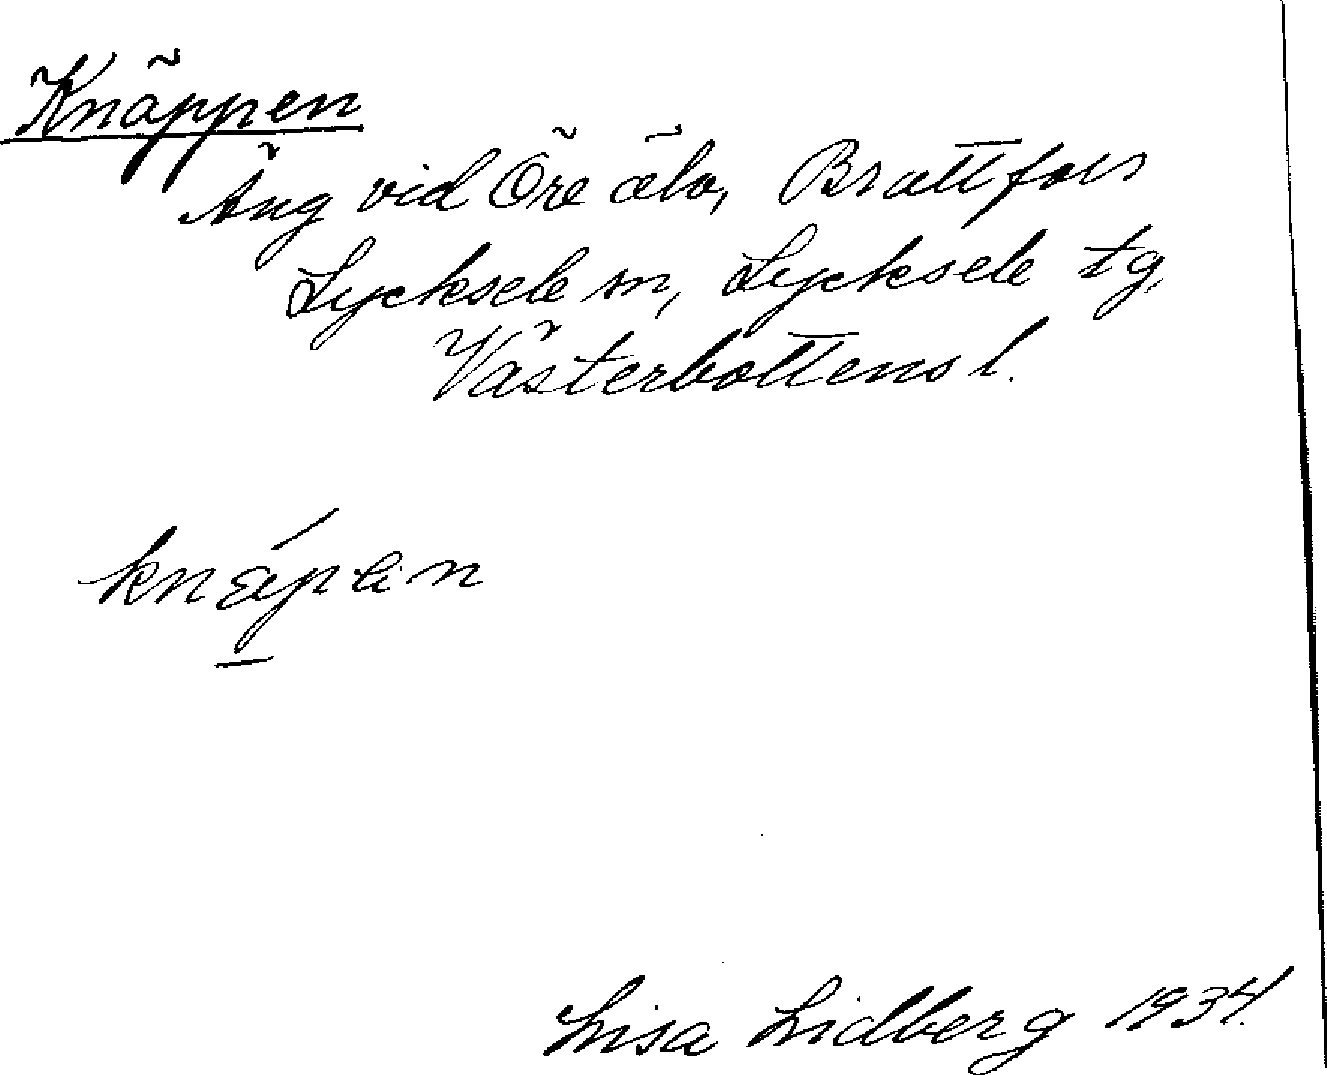 Knäppen
Äng vid Öre älv, Brattfors
Lycksele sn, Lycksele tg,
Västerbottens l.
knäpen
Lisa Lidberg 1934.